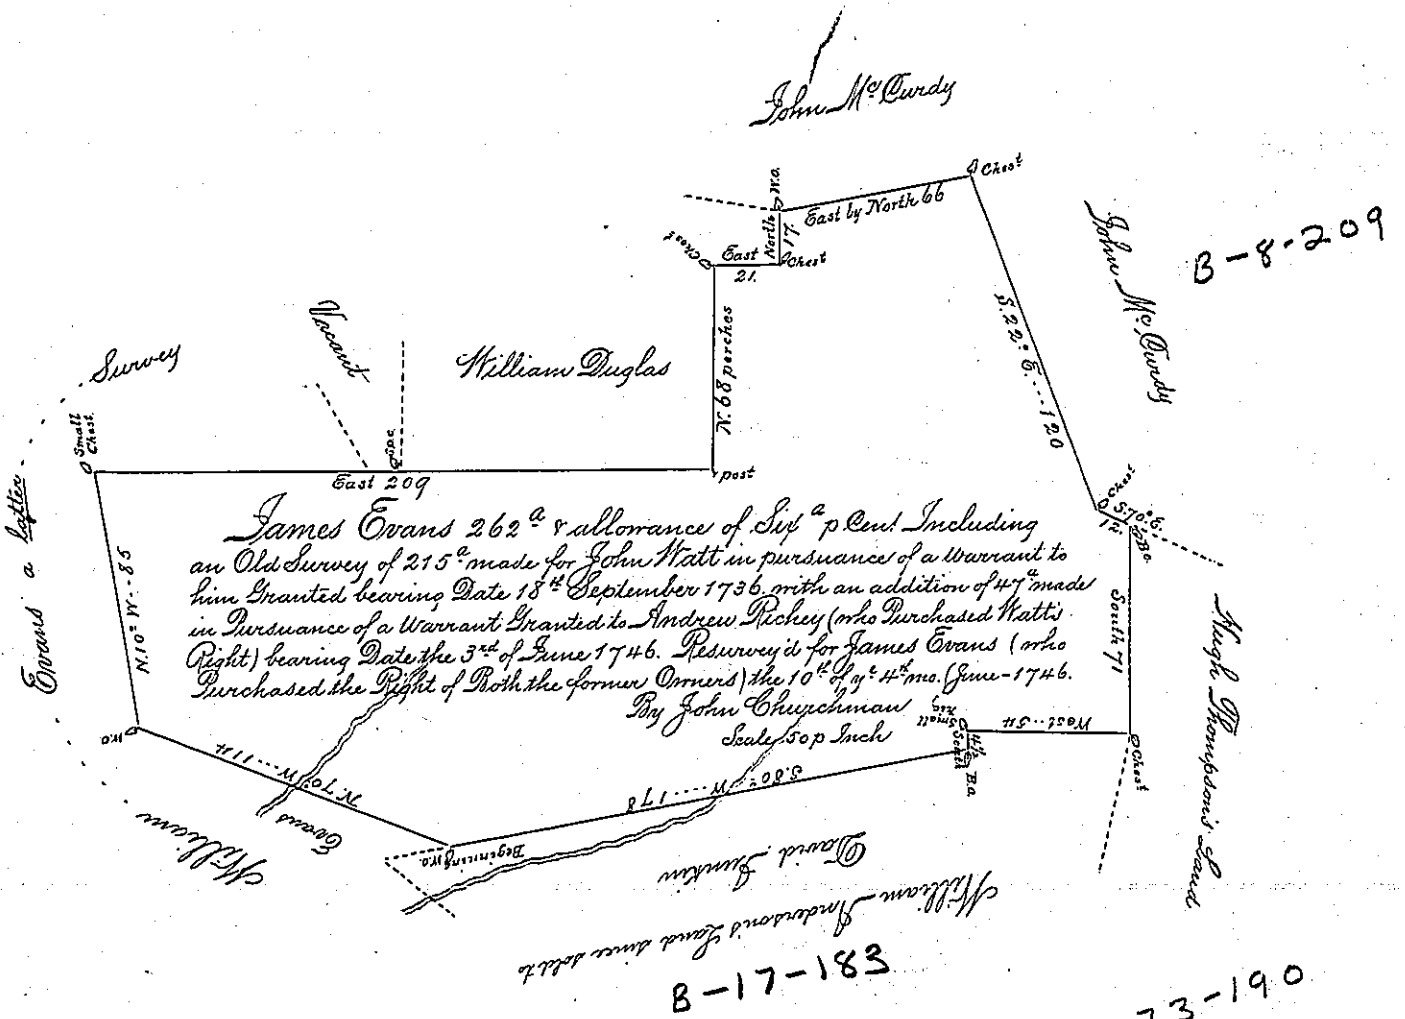 John Mc. Curdy
Chest
W.o.
East by North 66
North
17.
Chest
Chest
East
21.
John Mc. Curdy
B-8-209
S.22° E....120
N. 68 perches
William Duglas
Vacant
Survey
Small
Chest.
Evans a latter
post
East 209
Chest
S.70° E.
12.
South 71
Hugh Thompson's Land
James Evans 262 a & allowance of Six a p Cent Including
an Old Survey of 215 a made for John Watt in pursuance of a Warrant to
him Granted bearing Date 18th September 1736. with an addition of 47 a made
in Pursuance of a Warrant Granted to Andrew Richey (who Purchased Watts
Right) bearing Date the 3rd of June 1746. Resurvey'd for James Evans (who
Purchased the Right of Both the former Owners) the 10th of ye 4th mo. (June-1746.
By John Churchman
Scale 50 p Inch
N.10° W.-85
W.o.
N.70° W....114
William
Evans
Beginning W.o.
S.80° W.....178
South
4½
B.o.
Small
West...54
Chest
William Anderson's Land since sold to
David Junkin
B-17-183
73-190